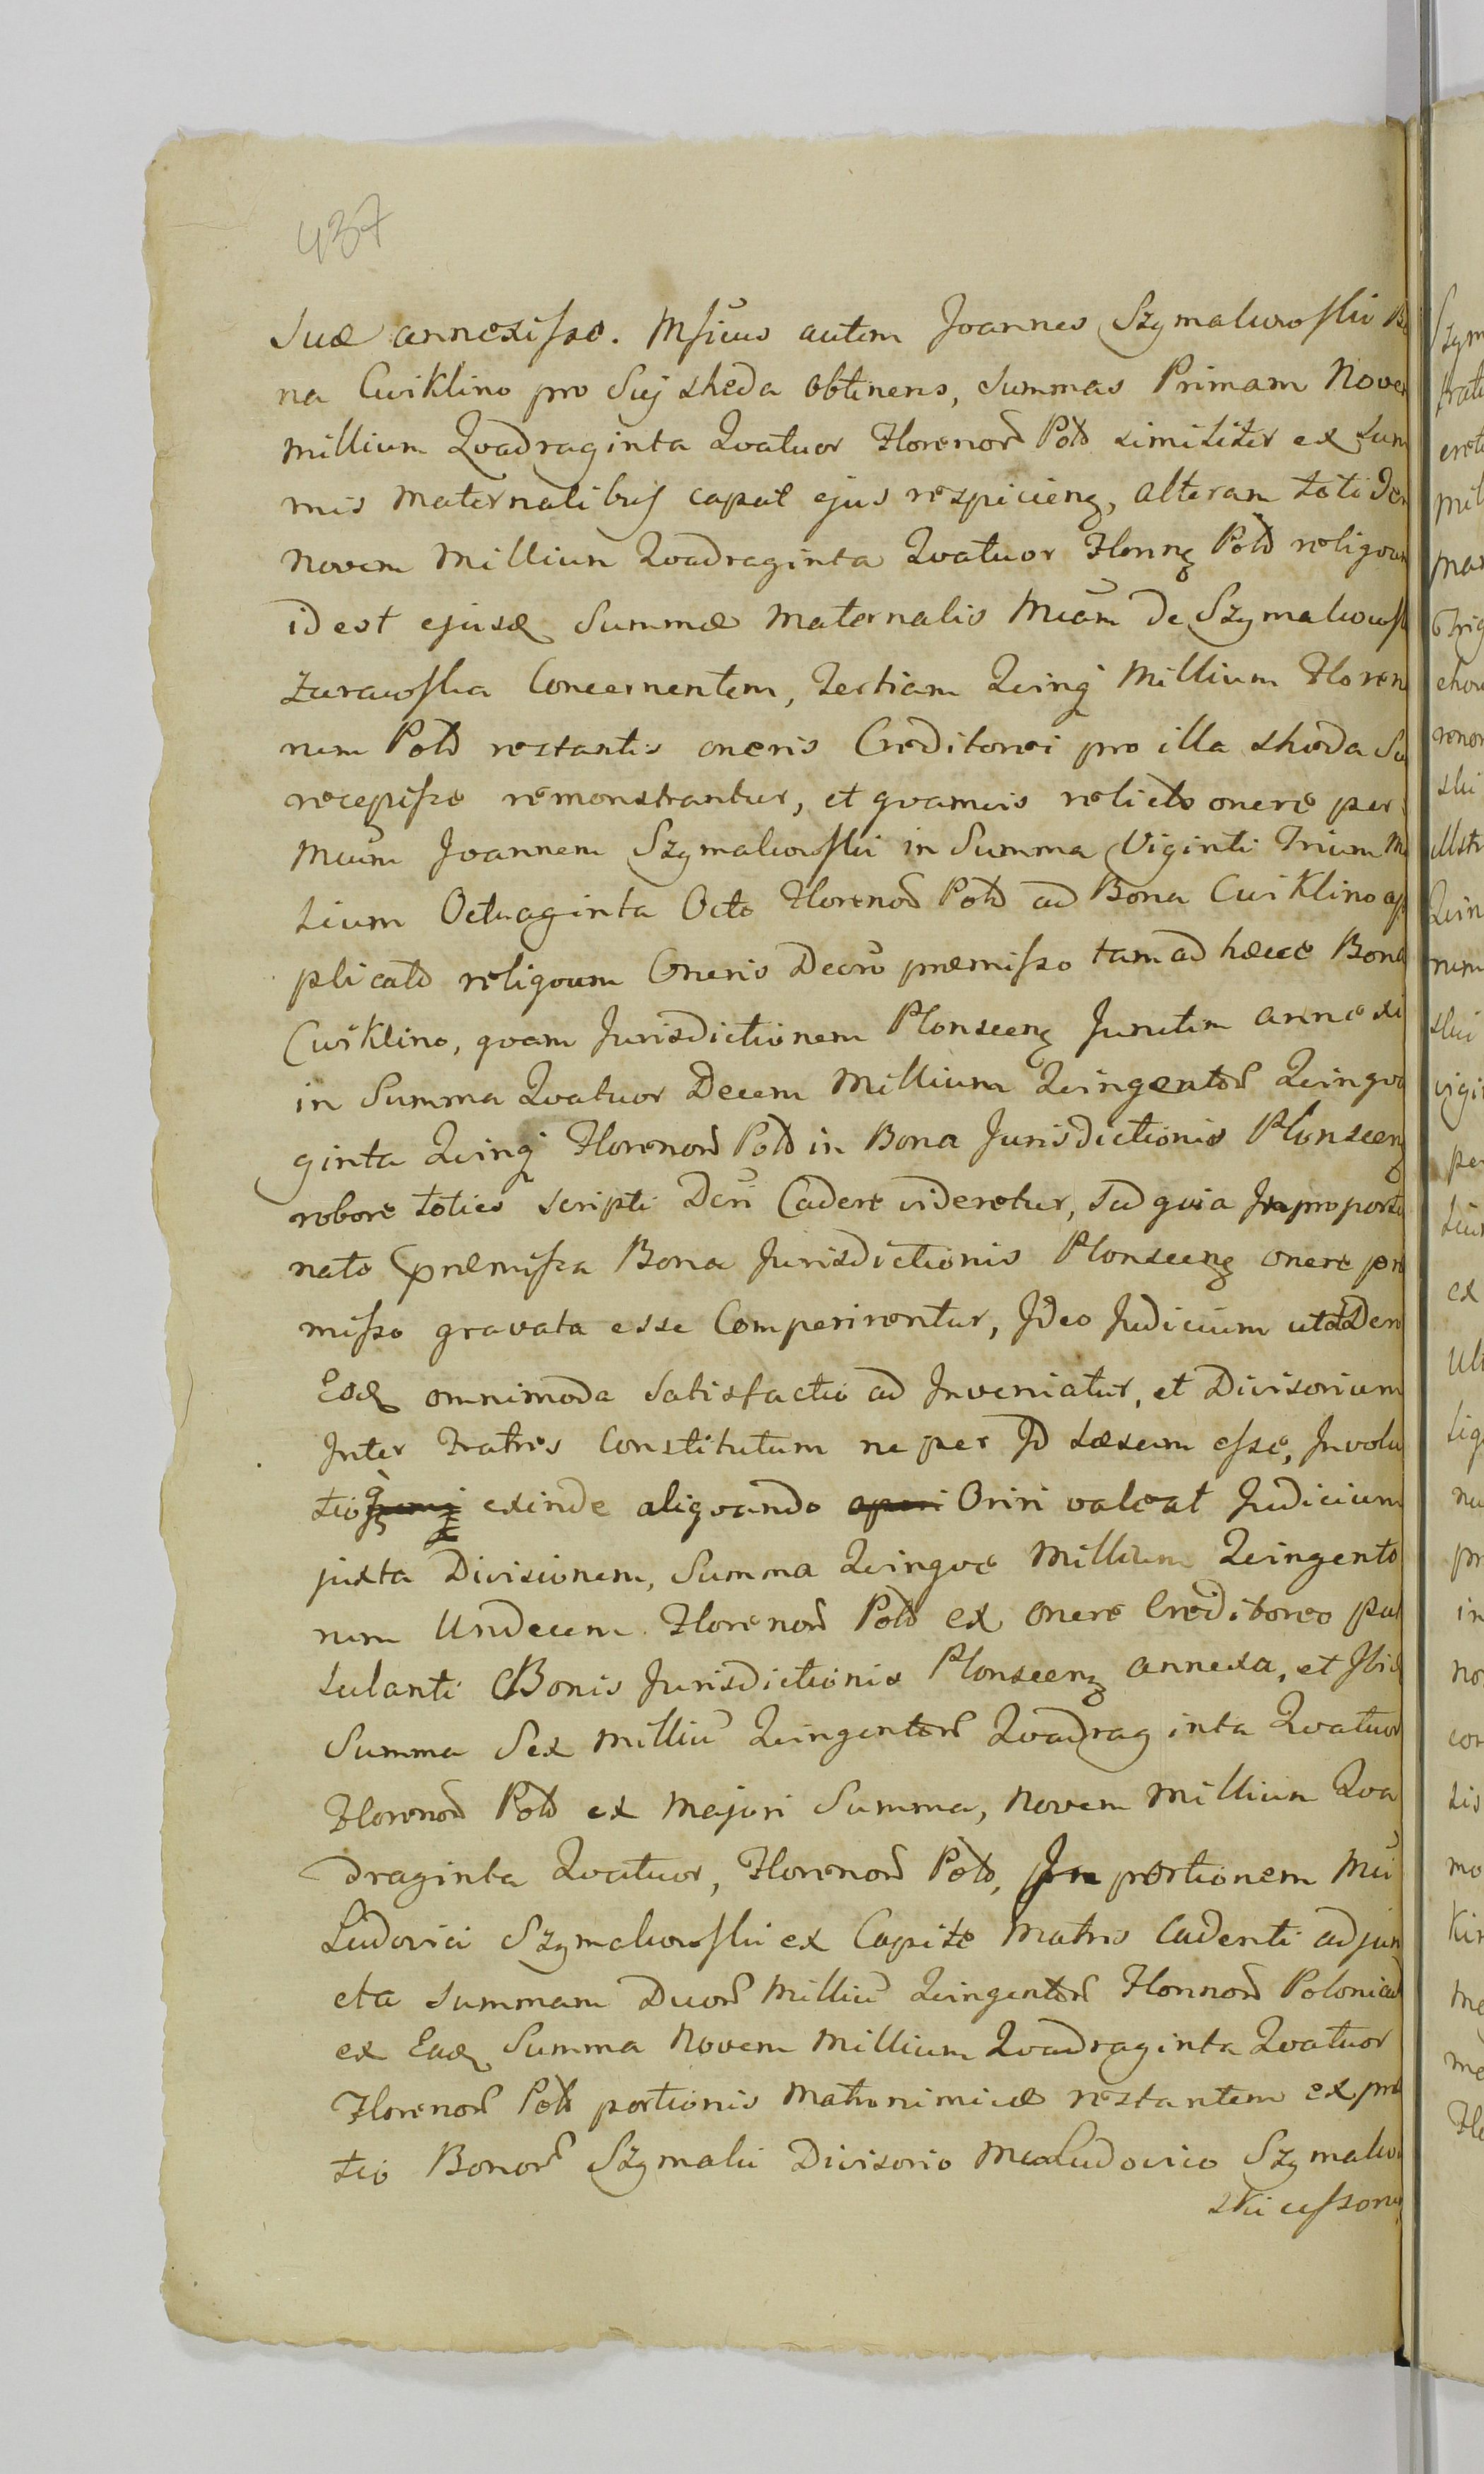 437
Suæ annexisse. Msicus autem Joannes Szymakowski Bo
na Cwiklino pro Suj sheda obtinens, Summas Primam Novem
millium Qvadraginta Qvatuor Florenor Pold similiter ex Sum
mis Maternalibus caput ejus respicieng, alteram totidem
Novem Millium Qvadraginta Qvatuor Florng Pold religvam
id est ejusd Summæ Maternalis Mcam de Szymakowsk
Zurawska Concernentem, Tertiam Qving Millium Floren
num Pold restantis oneris Creditorei pro illa sheda Su
recepisse remonstrantur, et qvamvis relicto onere per
Mcum Joannem Szymakowski in Summa Viginti Trium M
lium Octuaginta Octo Florenor Pold ad Bona Cwiklino ap
plicato religvum Oneris Decro præmisso tam ad hæcce Bona
Cwiklino, qvam Jurisdictionem Plonsceng Junctim annexi
in Summa Qvatuor Decem Millium Qvingentor Qvingva
ginta Qving Florenor Pold in Bona Jurisdictionis Plonsceng
robore toties scripti Dcri Cadere videretur, sed qvia Inproportio
nato præmissa Bona Jurisdictionis Plonsceng onere præ
misso gravata esse Comperirentur, Ideo Judicium ut
Eod omnimoda satisfactio ad Inveniatur, et Divisorium
Inter Fratres Constitutum ne per Id læsum esse, Involu
tio exinde aliqvando apari Oriri valeat Judicium
juxta Divisionem, Summa Qvingve Millium Qvingento
rum Undecem Florenor Pold ex onere Creditoreo pul
lulanti Bonis Jurisdictionis Plonsceng annexa, et Ibid
Summa Sex Milliu Qvingentor Qvadraginta Qvatuor
Florenor Pold ex Majori Summa, Novem Millium Qva
draginta Qvatuor, Florenor Pold, In portionem Mci
Ludovici Szymakowski ex Capite Matris Cadenti adjun
cta Summam Duor Milliu Qvingentor Florenor Polonical
ex Ead Summa Novem Millium Qvadraginta Qvatuor
Florenor Pold portionis Matrimicæ restantem ex præ
tio Bonor Szymaki Divisorio Mco Ludovico Szymakow
ski cesson